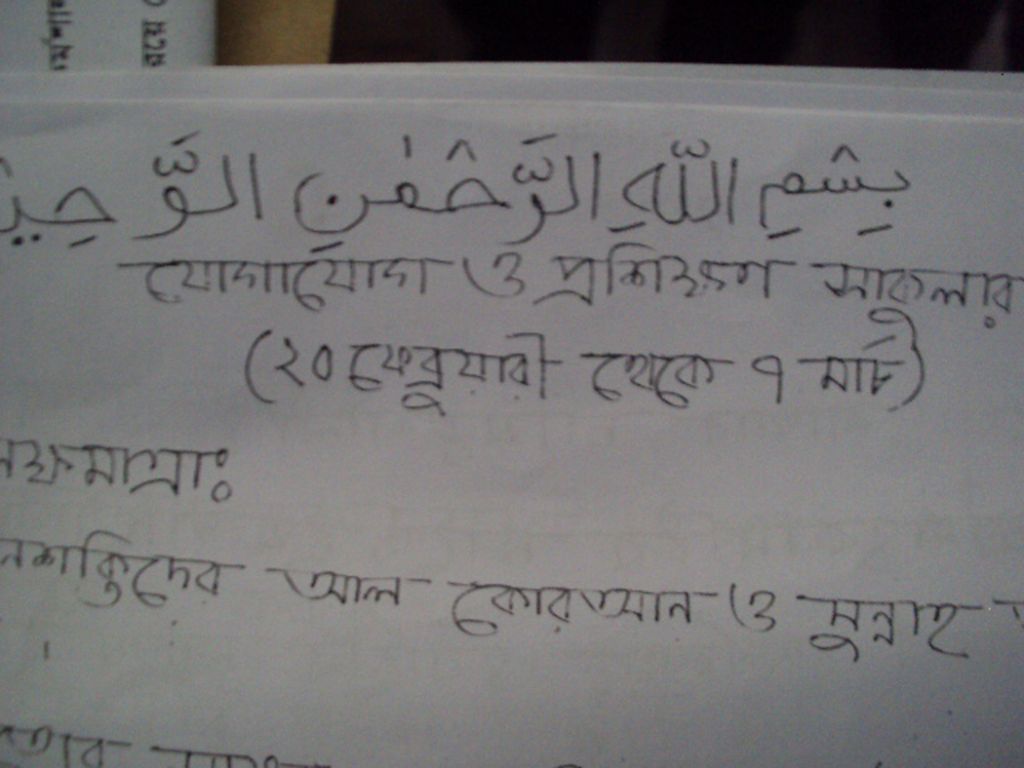 بِسْمِ اللّٰهِ الرَّحْمٰنِ الرَّحِيْ
যোগাযোগ ও প্রশিক্ষণ সার্কুলার
(২০ ফেব্রুয়ারী থেকে ৭ মার্চ)
লক্ষ্যমাত্রাঃ
নশক্তিদের আল কোরআন ও সুন্নাহ